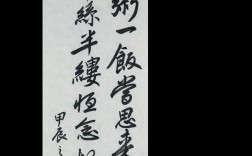 粥一飯當思來
絲半縷恒念
甲辰